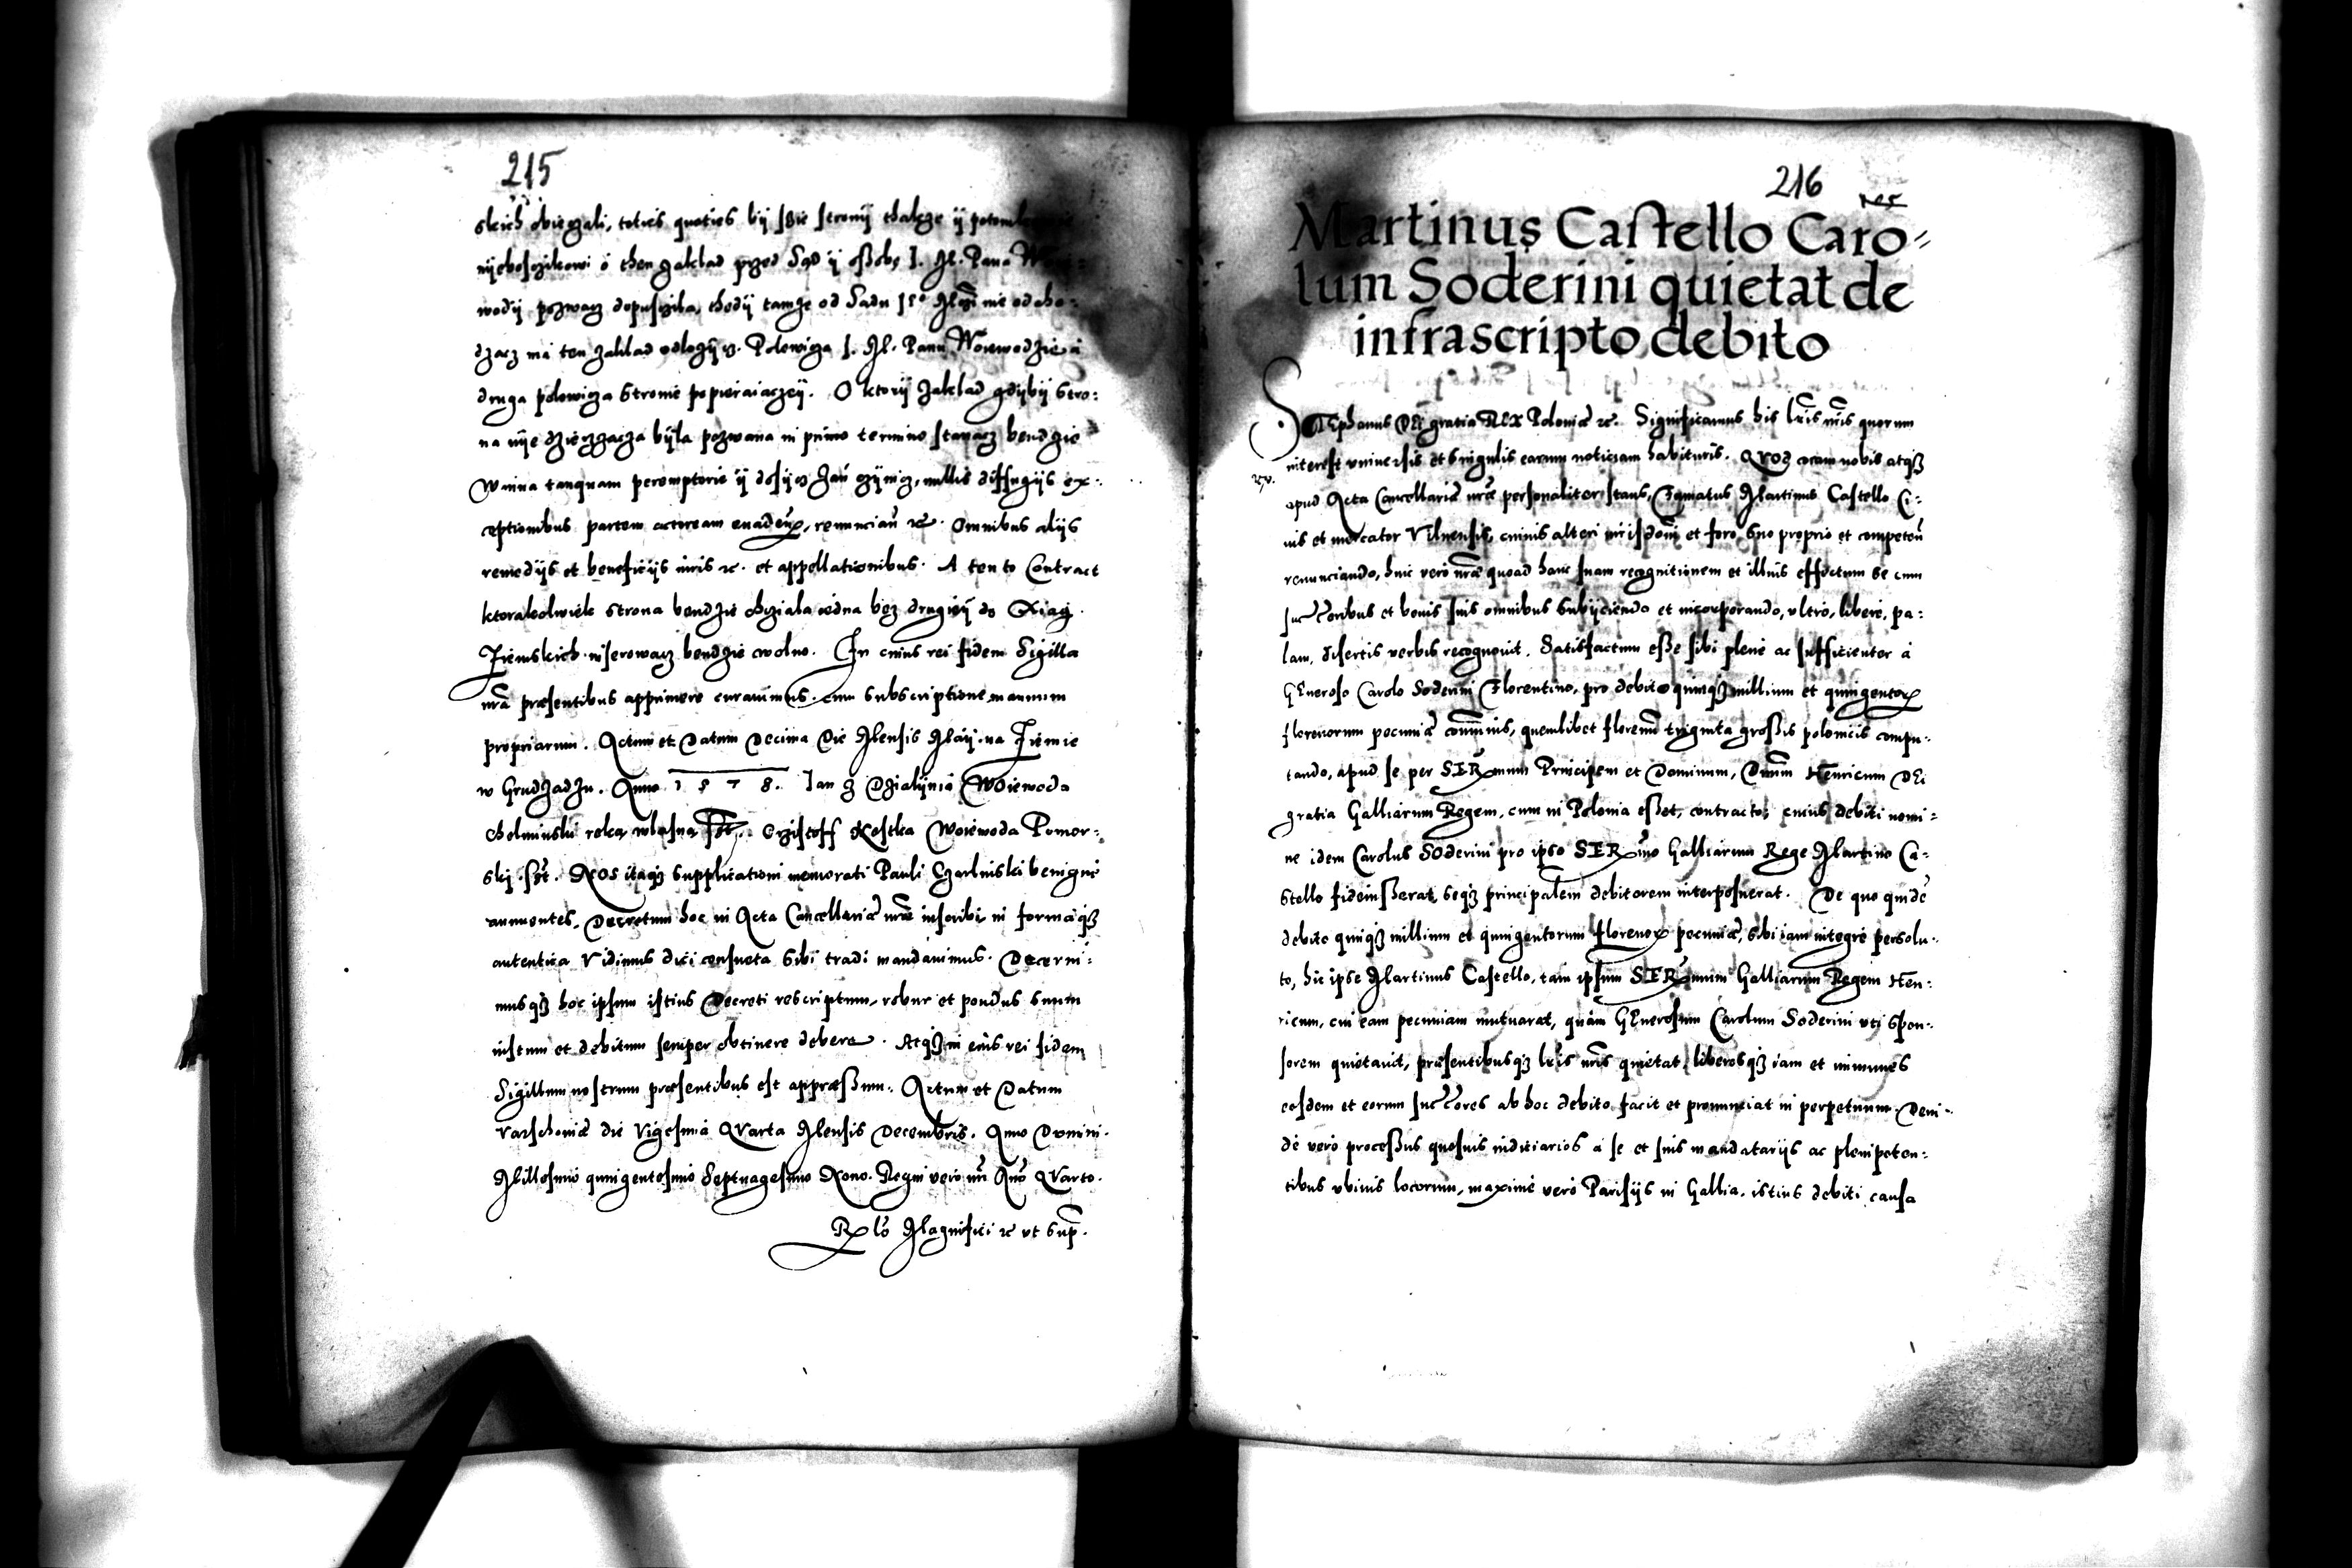 215
skich obieczali, toties quoties by sie strony thakze y potom
nyeboszikowi o then zaklad przed Sąd y osobę J. M. Pana
wody pozwacz dopuszila, thedy tamze od Sadu J⁰ Mczi nie odcho=
dzacz ma ten zaklad odlozycz. Polowicza J. M. Panu Woiewodzie a
druga polowicza stronie popieraiaczey. O ktory zaklad gdyby stro:
na nye dzierzącza byla pozwana in primo termino stanacz bendzie
winna tanquam peremptorie y dosycz zań czynicz, nullis diffugijs ex:
ceptionibus partem actoream euadeñ, renunciañ ec. Omnibus alijs
remedijs et beneficijs iuris ec. et appellationibus. A ten to Contract
ktorakolwiek strona bendzie chciala iedna bez drugiey do Xiag
Ziemskich inserowacz bendzie wolno. In cuius rei fidem Sigilla
nrã præsentibus apprimere curauimus cum subscriptione manuum
propriarum. Actum et Datum Decima Die Mensis Maij na Ziemie
w Grudzadzu. Anno 1578. Jan z Dzialynia Woiewoda
Chelminski reka wlasna sst. Crzistoff Kostka Woiewoda Pomor:
skj sst. NOS itaq3 supplicationi memorati Pauli Czarlinski benigne
annuentes, Decretum hoc in Acta Cancellariæ nræ inscribi, in formaq3
autentica Vidimus dici consueta sibi tradi mandauimus. Decerni:
musq3 hoc ipsum istius Decreti rescriptum, robur et pondus suum
iustum et debitum semper obtinere debere. Atq3 in eius rei fidem
Sigillum nostrum præsentibus est appræssum. Actum et Datum
Varschouiæ die Vigesima QVarta Mensis Decembris. Anno Domini.
Millesimo quingentesimo Septuagesimo Nono. Regni vero nri Año QVarto.
Rlo Magnifici ec vt sup.
216
Martinus Castello Caro=
lum Soderini quietat de
infrascripto debito
STEphanus DEI gratia REX Poloniæ ec. Significamus his lris nris quorum
interest vniuersis et singulis earum noticiam habituris. QVod coram nobis atq3
apud Acta Cancellariæ nræ personaliter stans, Famatus Martinus Castello Ci:
uis et mercator Vilnensis, cuiuis alteri iurisdoni et foro suo proprio et competeñ
renunciando, huic vero nræ quoad hanc suam recognitionem et illius effectum se cum
succoribus et bonis suis omnibus subijciendo et incorporando, vltro, libere, pa:
lam, disertis verbis recognouit. Satisfactum esse sibi plene ac sufficienter à
GEneroso Carolo Soderini Florentino, pro debito quinq3 millium et quingentor
florenorum pecuniæ communis, quemlibet florenum triginta grossis polonicis compu:
tando, apud se per SERmum Principem et Dominum, Dnum Henricum DEi
gratia Galliarum Regem, cum in Polonia esset, contracto; cuius debiti nomi:
ne idem Carolus SOderini pro ipso SERmo Galliarum Rege Martino Ca:
stello fideiusserat, seq3 principalem debitorem interposuerat. De quo quidẽ
debito quinq3 millium et quingentorum florenor pecuniæ, sibi iam integre persolu:
to, hic ipse Martinus Castello, tam ipsum SERmum Galliarum Regem Hen:
ricum, cui eam pecuniam mutuarat, quàm GEnerosum Carolum Soderini vti spon:
sorem quietauit, præsentibusq3 lris nris quietat, liberosq3 iam et immunes
eosdem et eorum succores ab hoc debito facit et pronunciat in perpetuum. Dein:
de vero processus quosuis iudiciarios à se et suis mandatarijs ac plenipoten:
tibus vbiuis locorum, maxime vero Parisijs in Gallia, istius debiti causa